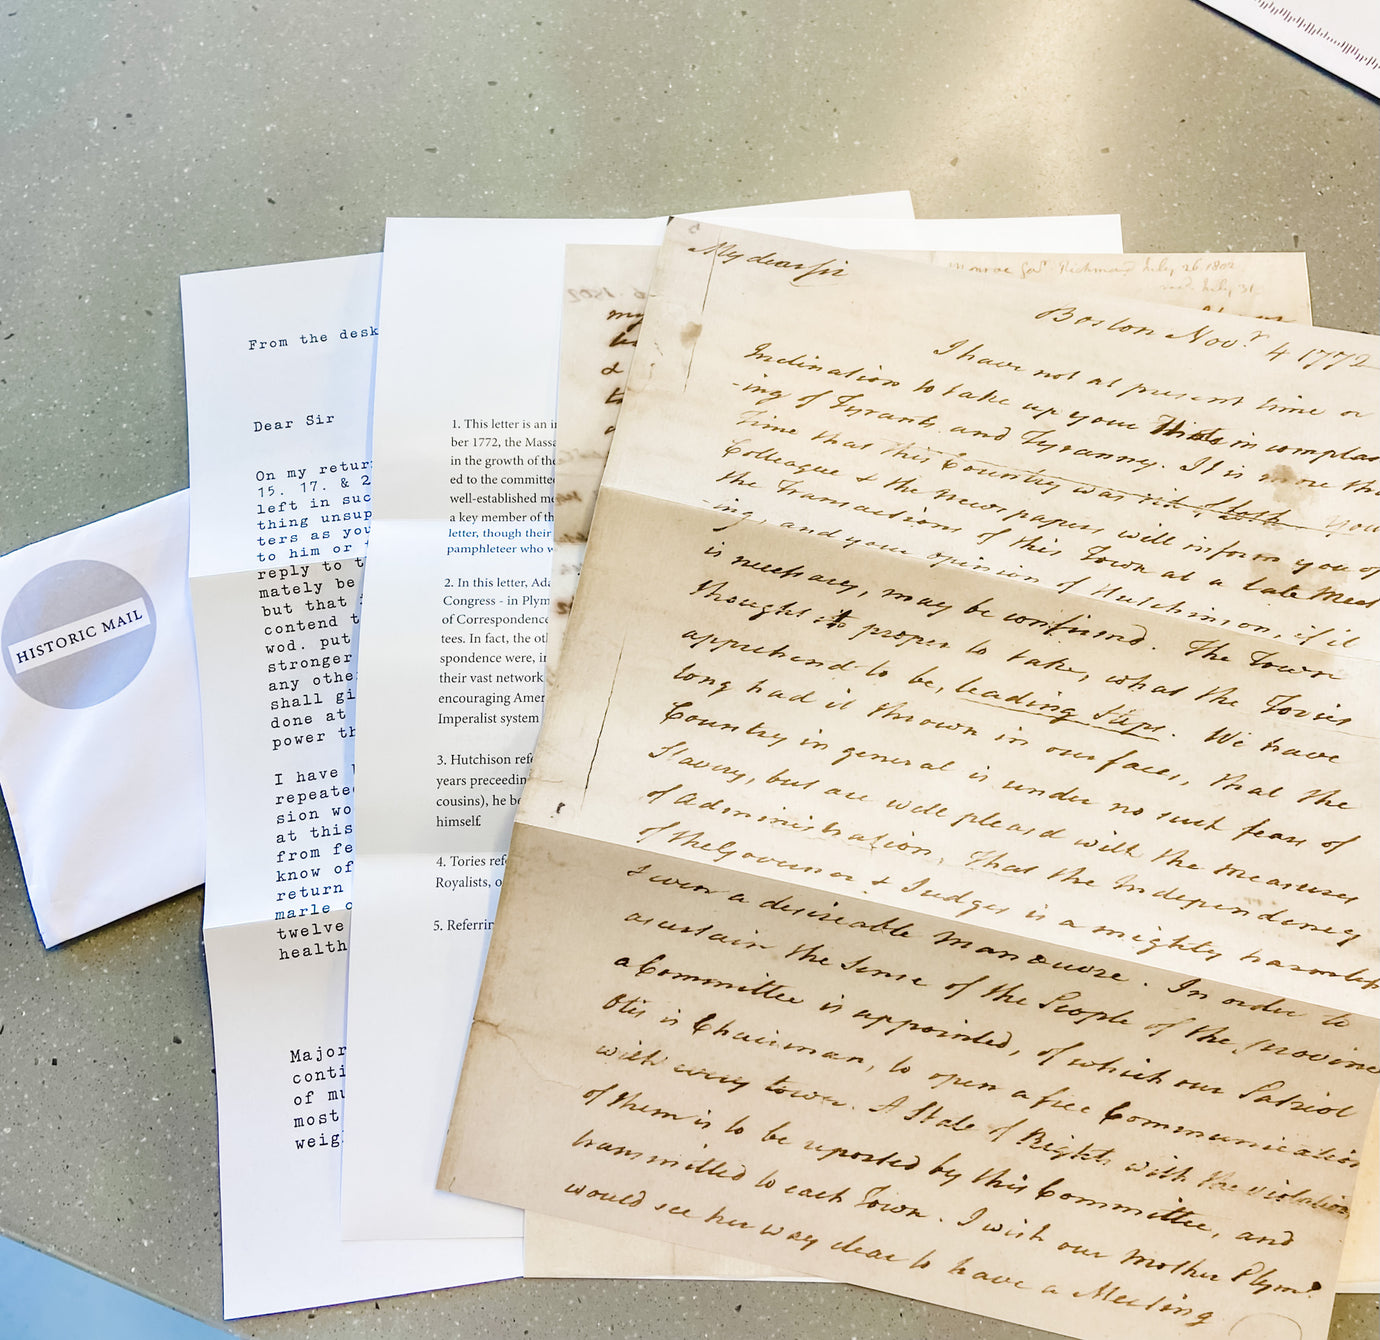 HISTORIC MAIL
From the desk
Dear Sir
On my retur
15. 17. & 2
left in suc
thing unsup
ters as you
to him or
reply to t
mately be
but that
contend t
wod. put
stronger
any othe
shall gi
done at
power th
I have
repeate
sion wo
at this
from fe
know of
return
marle c
twelve
health
Major
conti
of mu
most
weig
1. This letter is an i
ber 1772, the Massa
in the growth of the
ed to the committee
well-established me
a key member of th
letter, though their
pamphleteer who w
2. In this letter, Ada
Congress - in Plym
of Correspondence
tees. In fact, the otl
spondence were, in
their vast network
encouraging Amer
Imperalist system
3. Hutchison refe
years preceedin
cousins), he be
himself.
4. Tories refe
Royalists, o
5. Referrin
Monroe Gov.r Richmond July 26. 1802
recd. July 31.
My dear Sir
Boston Nov.r 4 1772
I have not at present time or
Inclination to take up your Hint in complai
-ing of Tyrants and Tyranny. It is more tha
Time that this Country was rid of both. Your
Colleague & the Newspapers will inform you of
the Transactions of this Town at a late Meet
-ing, and your opinion of Hutchinson, if it
is necessary, may be confirmed. The Town
thought it proper to take, what the Tories
apprehend to be, leading Steps. We have
long had it thrown in our faces, that the
Country in general is under no such fears of
Slavery, but are well pleasd with the measures
of Administration, That the Independency
of the Governor & Judges is a mighty harmless
& even a desireable Manouvre. In order to
ascertain the Sense of the People of the Province
a Committee is appointed, of which our Patriot
Otis is Chairman, to open a free Communication
with every town. A State of Rights with the violation
of them is to be reported by this Committee, and
transmitted to each Town. I wish our Mother Plym.o
would see her way clear to have a Meeting